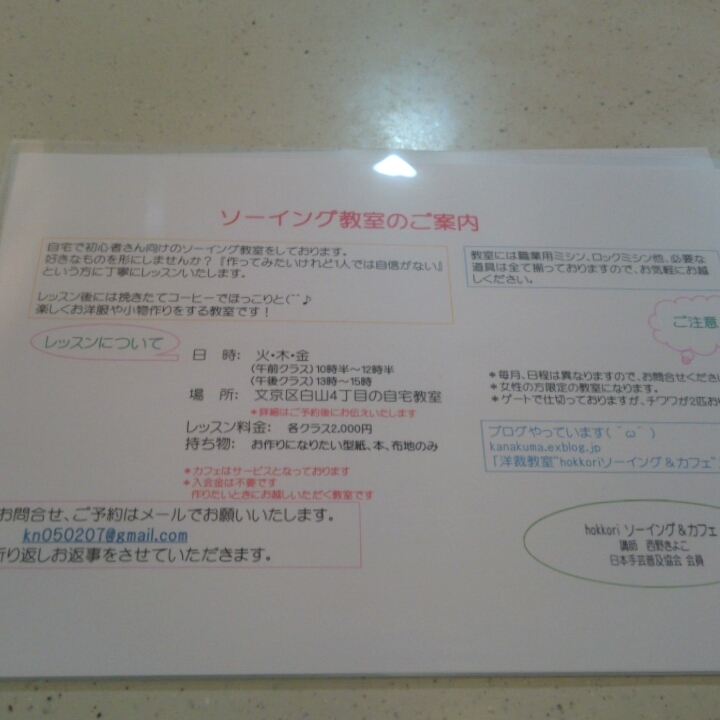 ソーイング教室のご案内
自宅で初心者さん向けのソーイング教室をしております。
好きなものを形にしませんか？『作ってみたいけれど1人では自信がない』
という方に丁寧にレッスンいたします。
レッスン後には挽きたてコーヒーでほっこりと(^^♪
楽しくお洋服や小物作りをする教室です！
教室には職業用ミシン、ロックミシン他、必要な
道具は全て揃っておりますので、お気軽にお越
しください。
ご注意
レッスンについて
日　時:　火・木・金
(午前クラス)10時半～12時半
(午後クラス)13時～15時
場　所:　文京区白山4丁目の自宅教室
＊詳細はご予約後にお伝えいたします
レッスン料金:　各クラス2,000円
持ち物:　お作りになりたい型紙、本、布地のみ
＊カフェはサービスとなっております
＊入会金は不要です
作りたいときにお越しいただく教室です
＊毎月、日程は異なりますので、お問合せくださ
＊女性の方限定の教室になります。
＊ゲートで仕切っておりますが、チワワが2匹お
ブログやっています(^ω^)
kanakuma.exblog.jp
「洋裁教室"hokkoriソーイング＆カフェ"
お問合せ、ご予約はメールでお願いいたします。
kn050207@gmail.com
折り返しお返事をさせていただきます。
hokkori ソーイング＆カフェ
講師　西野きよこ
日本手芸普及協会 会員